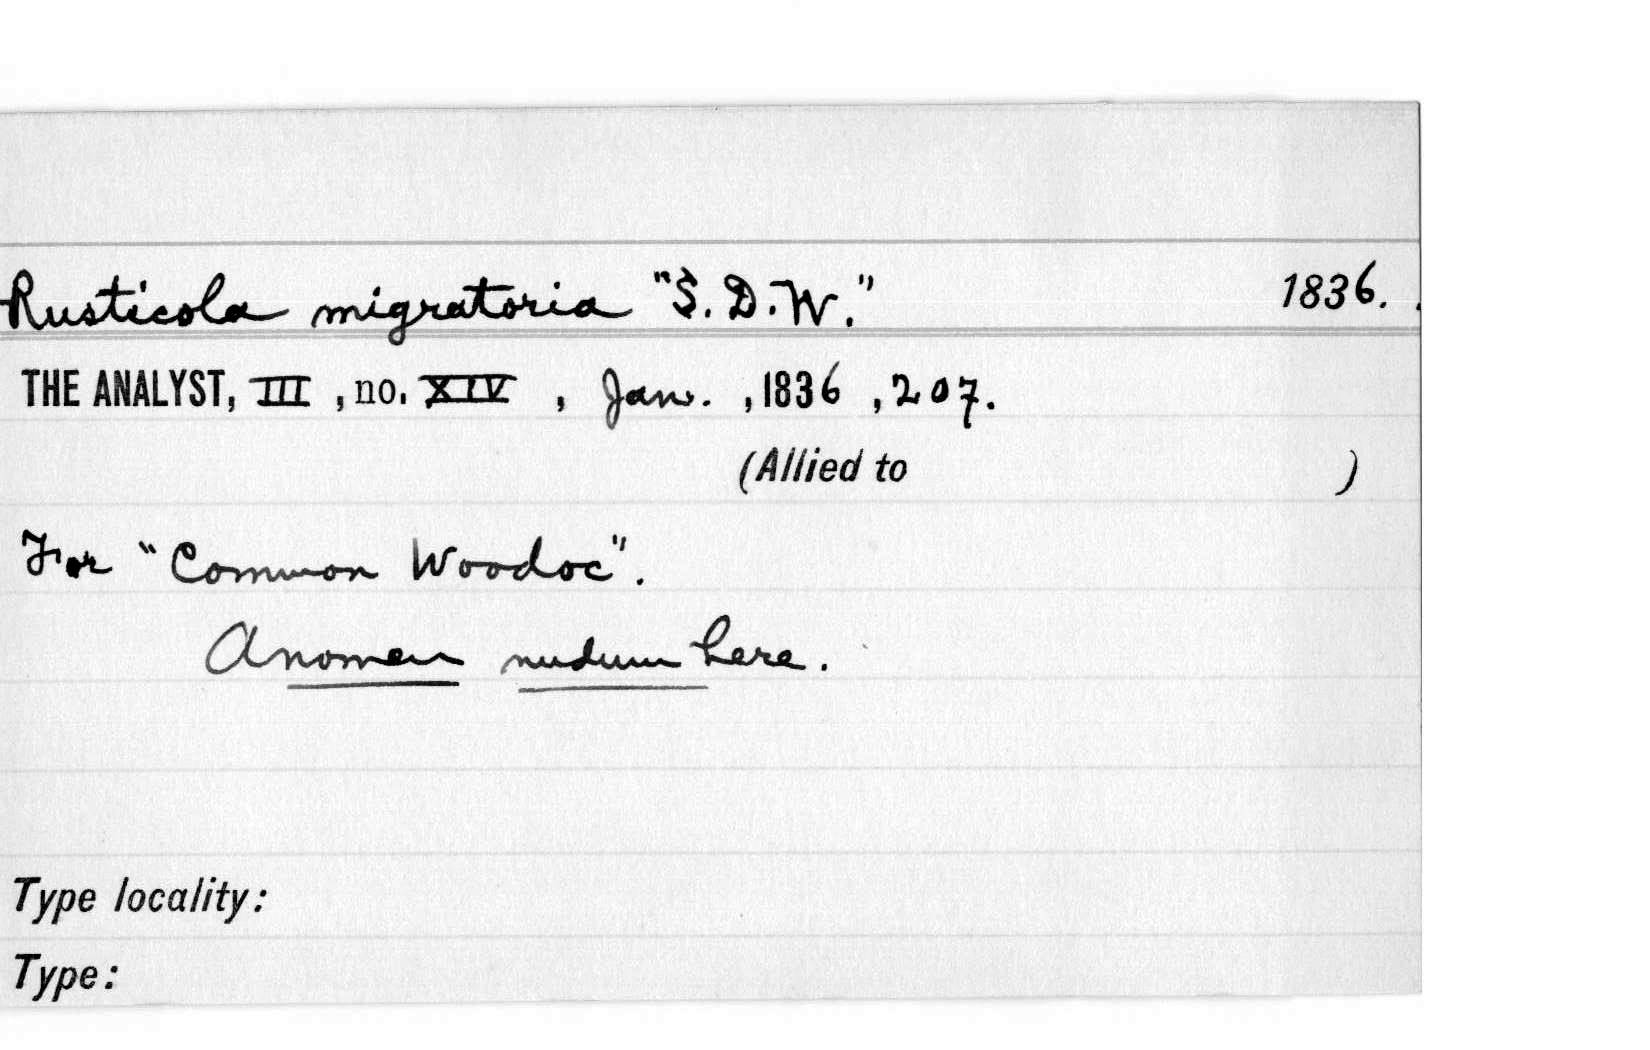 Rusticola migratoria "S. D. W." 1836.
THE ANALYST, III, no. XIV, Jan., 1836, 207.
(Allied to )
For "Common Woodoc".
A nomen nudum here.
Type locality:
Type: